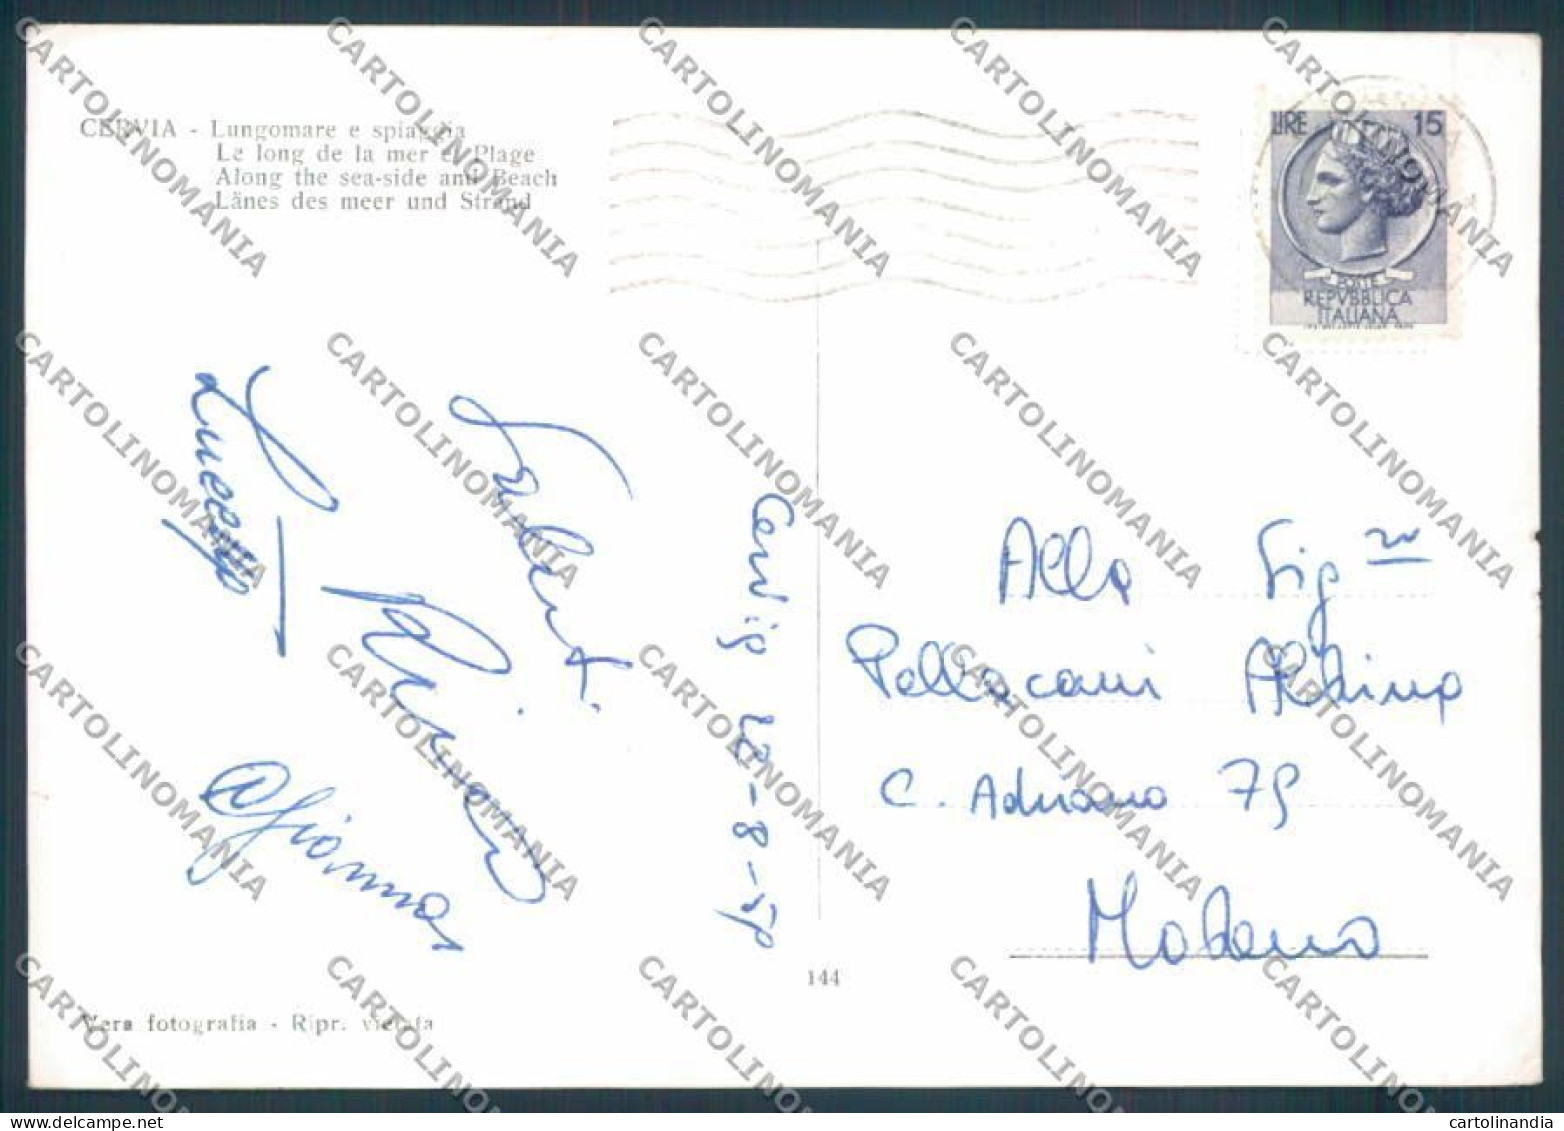 CERVIA - Lungomare e spiaggia
Le long de la mer et Plage
Along the sea-side and Beach
Länes des meer und Strand
LIRE 15
POSTE
REPVBBLICA
ITALIANA
Saluti
Cervia
Alla Sig ra
Pellacani Albina
C. Adriano 75
Modena
144
Vera fotografia - Ripr. vietata
CARTOLINOMANIA
cartolinandia